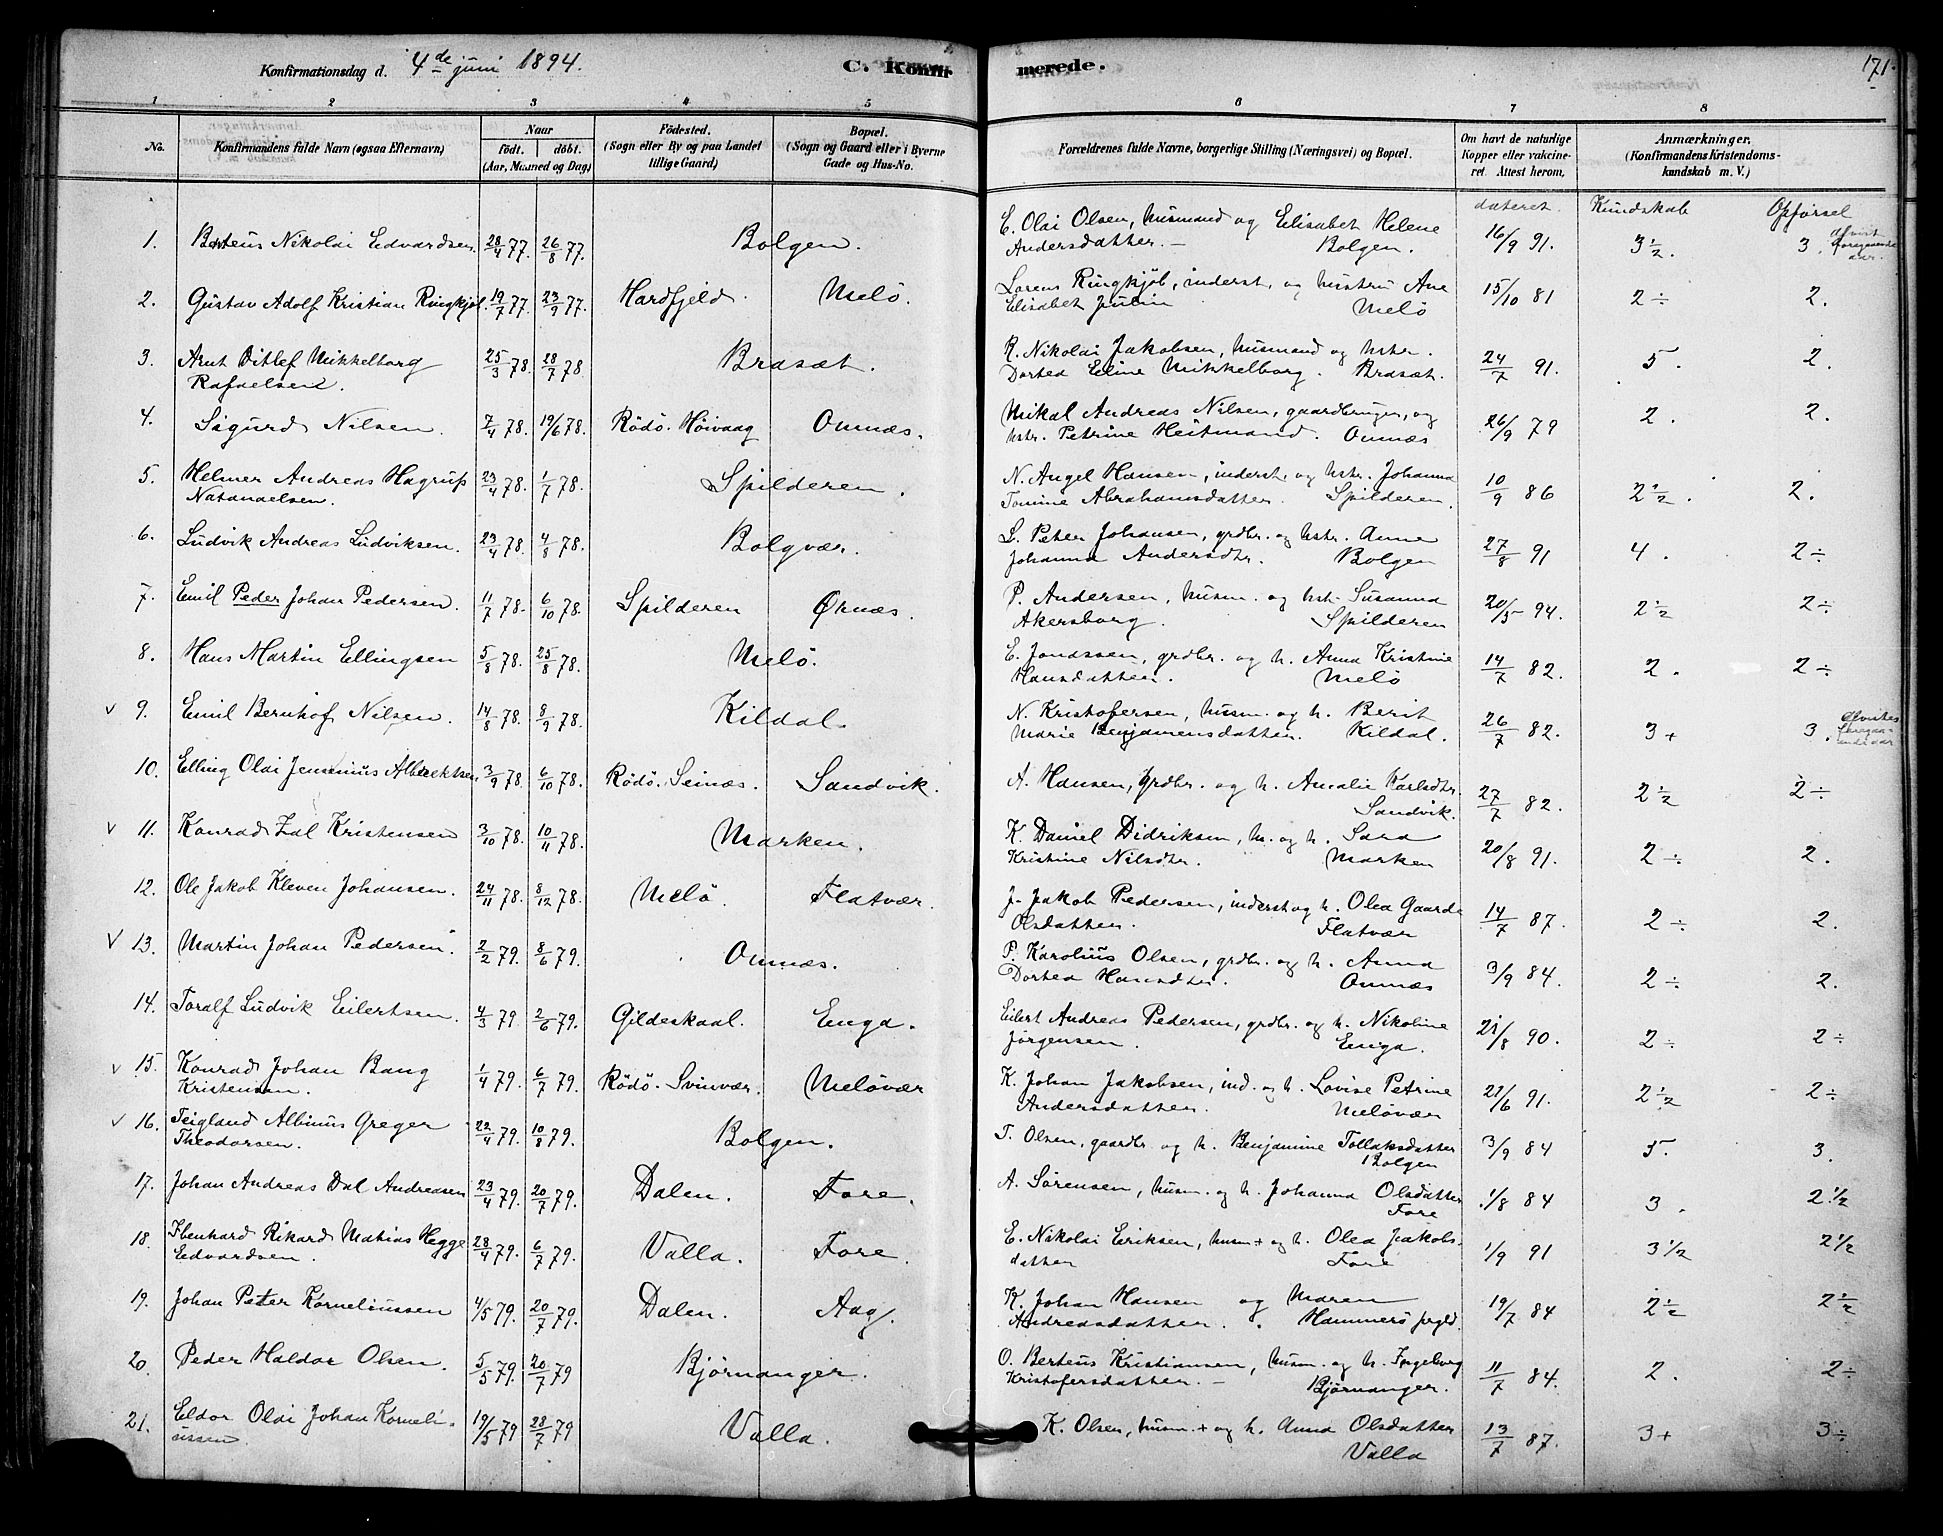 Konfirmationsdag d. 4de juni 1894.
C. Konfirmerede.
171.
1 2 3 4 5 6 7 8
No.
Konfirmandens fulde Navn (ogsaa Efternavn)
Naar
Født. døbt.
(Aar, Maaned og Dag)
Fødested.
(Sogn eller By og paa Landet
tillige Gaard)
Bopæl.
(Sogn og Gaard eller i Byerne
Gade og Hus-No.
Forældrenes fulde Navne, borgerlige Stilling (Næringsvei) og Bopæl.
Om havt de naturlige
Kopper eller vakcine-
ret. Attest herom,
dateret.
Anmærkninger.
(Konfirmandens Kristendoms-
kundskab m. V.)
Kundskab Opførsel
1. Berteus Nikolai Edvardsen. 28/4 77. 26/8 77. Bolgen. E. Olai Olsen, husmand og Elisabet Helene
Andersdatter. – Bolgen. 16/9 91. 3 1/2. 3.
2. Gustav Adolf Kristian Ringkjøb. 19/7 77. 23/9 77. Hardfjeld. Melö. Lorens Ringkjøb, inderst, og hustru Ane
Elisabet Julin Melö 15/10 81 2 ÷ 2.
3. Arnt Ditlef Mikkelborg
Rafaelsen. 25/3 78. 28/7 78. Brasæt. R. Nikolai Jakobsen, husmand og hstr.
Dortea Eline Mikkelborg. Brasæt. 24/7 91. 5. 2.
4. Sigurd Nilsen. 7/4 78. 19/6 78. Rödö. Höivaag Onnæs. Mikal Andreas Nilsen, gaardbruger, og
hstr. Petrine Heitmand. Onnæs 26/9 79 2. 2.
5. Helmer Andreas Hagrup
Natanaelsen. 23/4 78. 1/7 78. Spilderen. N. Angel Hansen, inderst. og hstr. Johanna
Tomine Abrahamsdatter. Spilderen. 10/9 86 2 1/2. 2.
6. Ludvik Andreas Ludviksen. 23/4 78. 4/8 78. Bolgvær. L. Peter Johansen, grdbr. og hstr. Anne
Johanna Andersdtr. Bolgen 27/8 91 4. 2 ÷
7. Emil Peder Johan Pedersen. 11/7 78. 6/10 78. Spilderen Ørnæs. P. Andersen, husm. og hstr. Susanna
Akersborg. Spilderen 20/5 94. 2 1/2 2 ÷
8. Hans Martin Ellingsen 5/8 78. 25/8 78. Melö. E. Jondssen, grdbr. og h. Anna Kristine
Hansdatter. Melö 14/7 82. 2. 2 ÷
v 9. Emil Bernhof Nilsen. 14/8 78. 8/9 78. Kildal. N. Kristofersen, husm. og h. Berit
Marie Benjamensdatter. Kildal. 26/7 82. 3 + 3.
10. Elling Olai Jensenius Albrektsen 3/9 78. 6/10 78. Rödö. Seinæs. Sandvik. A. Hansen, grdbr. og h. Amalie Karlsdtr.
Sandvik. 27/7 82. 2 1/2 2 ÷
v 11. Konrad Zal Kristensen 3/10 78. 10/11 78. Marken. K. Daniel Didriksen, h. og h. Sara
Kristine Nilsdtr. Marken 20/8 91. 2 ÷ 2.
12. Ole Jakob Kleven Johansen. 24/11 78. 8/12 78. Melö. Flatvær. J. Jakob Pedersen, inderst og h. Olea Gaarda
Olsdatter. Flatvær 14/7 87. 2 ÷ 2.
v 13. Martin Johan Pedersen 2/2 79. 8/6 79. Onnæs. P. Karolius Olsen, grdbr. og h. Anna
Dortea Hansdtr. Onnæs 3/9 84. 2 ÷ 2.
14. Toralf Ludvik Eilertsen. 4/3 79. 2/6 79. Gildeskaal. Enga. Eilert Andreas Pedersen, grdbr. og h. Nikoline
Jørgensen. Enga. 21/8 90. 2 ÷ 2 ÷
v 15. Konrad Johan Bang
Kristensen. 1/4 79. 6/7 79. Rödö. Svinvær. Melövær K. Johan Jakobsen, ind. og h. Lovise Petrine
Andersdatter. Melövær 21/6 91. 2 1/2 2 ÷
v 16. Teigland Albinus Greger
Theodorsen. 22/4 79. 10/8 79. Bolgen. T. Olsen, gaardbr. og h. Benjamine Tollaksdatter
Bolgen 3/9 84 5. 3.
17. Johan Andreas Dal Andreasen 23/4 79. 20/7 79. Dalen. Fore. A. Sörensen, husm. og h. Johanna Olsdatter
Fore 1/8 84 3. 2 1/2
18. Ebenhard Rikard Matias Hegge
Edvardsen. 28/4 79. 6/7 79. Valla. Fore. E. Nikolai Eriksen, husm + og h. Olea Jakobs-
datter Fore 1/9 91 3 1/2 2 1/2
19. Johan Peter Korneliussen 4/5 79. 20/7 79. Dalen. Aag. K. Johan Hansen og Maren
Andreasdatter. Hammerö prgld. 19/7 84 2 1/2 2 1/2
20. Peder Haldor Olsen. 5/5 79. 20/7 79 Bjørnanger. O. Berteus Kristiansen, husm. og h. Ingeborg
Kristofersdatter. – Bjørnanger. 11/7 84. 2. 2 ÷
21. Eldor Olai Johan Korneli-
ussen. 19/5 79 28/7 79 Valla. K. Olsen, husm. + og h. Anna Olsdatter
Valla 13/7 87. 3 + 3 ÷